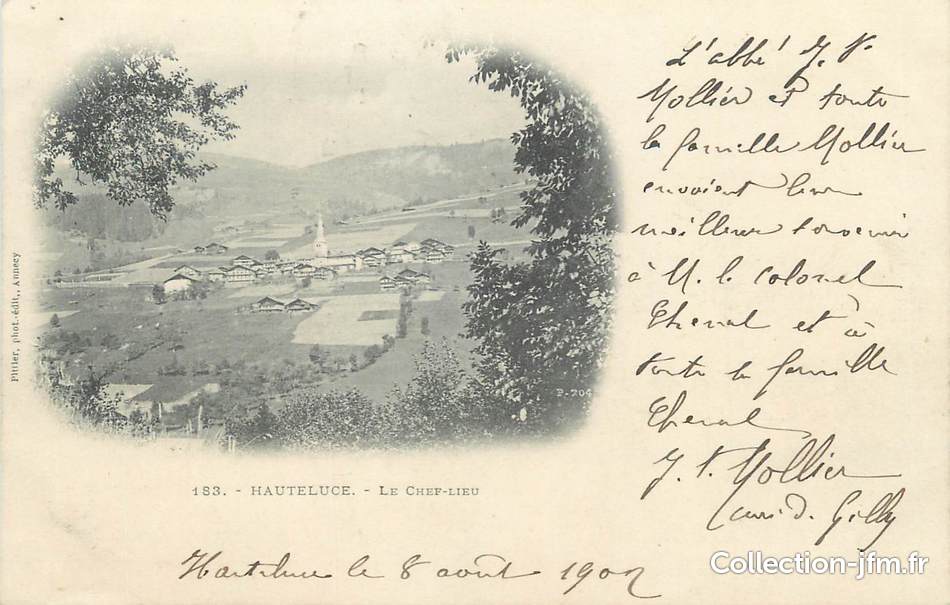 L'abbé J. V.
Mollier et toute
la famille Mollier
envoient leur
meilleur souvenir
à M. le colonel
Thenal et à
toute la famille
Thenal
J. V. Mollier
curé d. Gilly
Pittier, phot.-édit., Annecy
P-704
183. - HAUTELUCE. - LE CHEF-LIEU
Hauteluce le 8 août 1902
Collection-jfm.fr